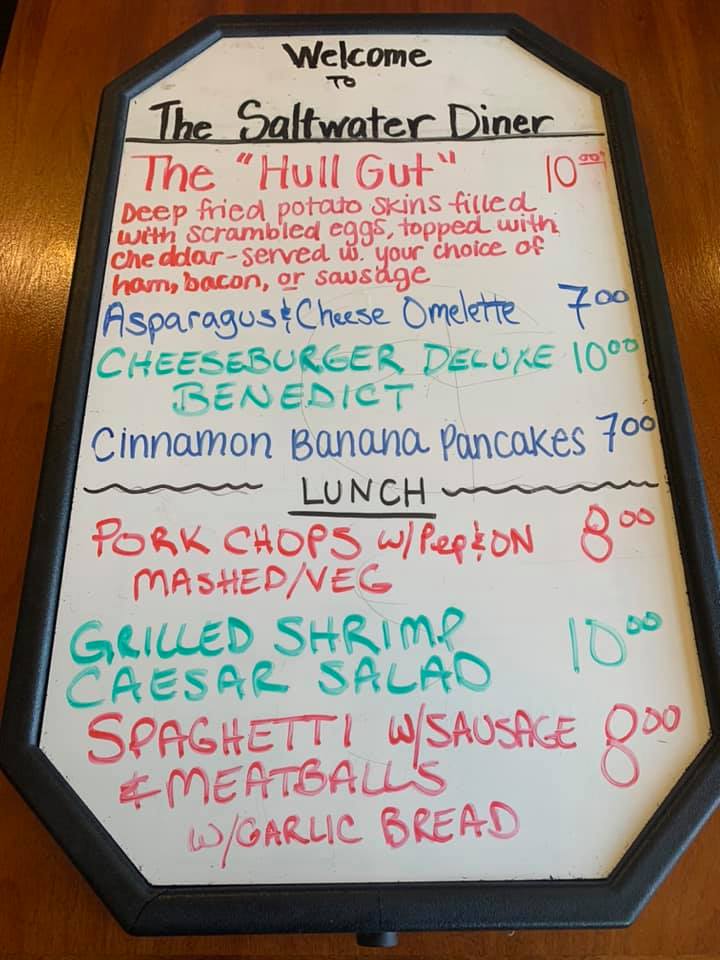 Welcome
TO
The Saltwater Diner
The "Hull Gut" 10.00
Deep fried potato skins filled
with scrambled eggs, topped with
cheddar-served w. your choice of
ham, bacon, or sausage
Asparagus & Cheese Omelette 7.00
CHEESEBURGER DELUXE 10.00
BENEDICT
Cinnamon Banana Pancakes 7.00
LUNCH
PORK CHOPS w/Pep & ON 8.00
MASHED/VEG
GRILLED SHRIMP 10.00
CAESAR SALAD
SPAGHETTI W/SAUSAGE 8.00
& MEATBALLS
W/GARLIC BREAD